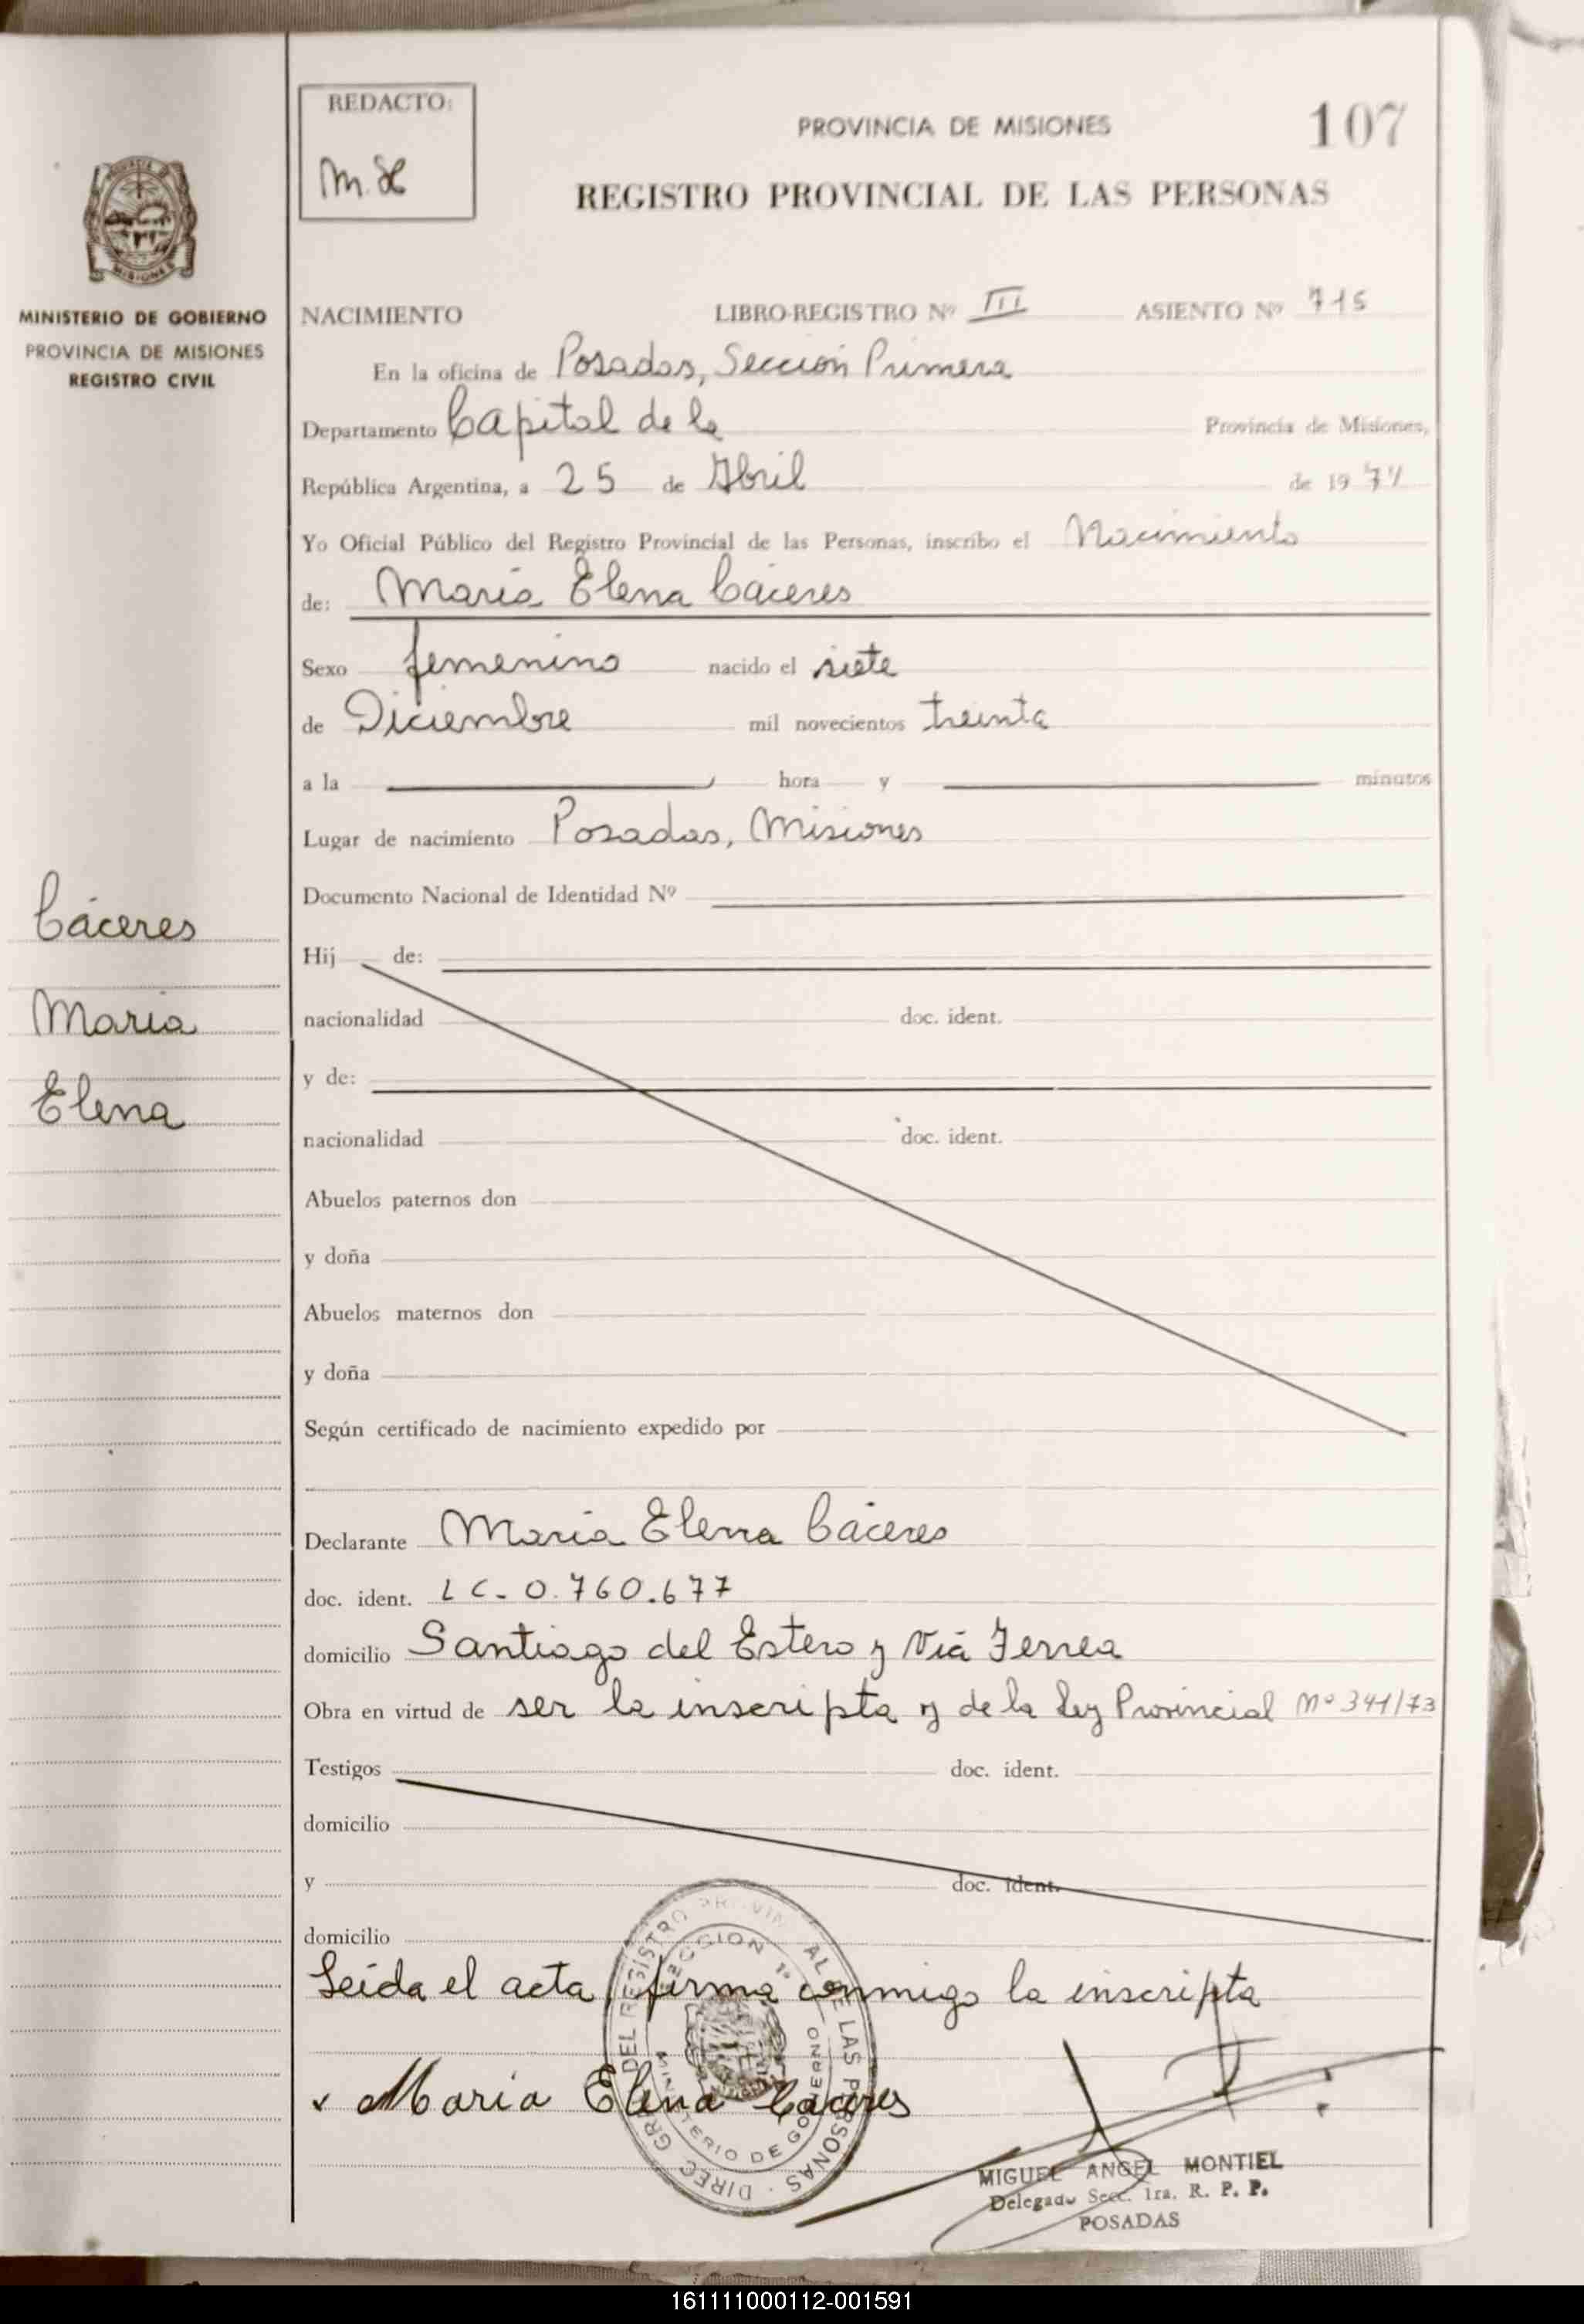 REDACTO:
M. H
PROVINCIA DE MISIONES
107
REGISTRO PROVINCIAL DE LAS PERSONAS
PROVINCIA DE
MISIONES
MINISTERIO DE GOBIERNO
PROVINCIA DE MISIONES
REGISTRO CIVIL
NACIMIENTO LIBRO-REGISTRO Nº III ASIENTO Nº 715
En la oficina de Posadas, Sección Primera
Departamento Capital de la Provincia de Misiones,
República Argentina, a 25 de Abril de 1974
Yo Oficial Público del Registro Provincial de las Personas, inscribo el Nacimiento
de: María Elena Cáceres
Sexo femenino nacido el siete
de Diciembre mil novecientos treinta
a la hora y minutos
Lugar de nacimiento Posadas, Misiones
Documento Nacional de Identidad Nº
Cáceres
María
Elena
Hij de:
nacionalidad doc. ident.
y de:
nacionalidad doc. ident.
Abuelos paternos don
y doña
Abuelos maternos don
y doña
Según certificado de nacimiento expedido por
Declarante María Elena Cáceres
doc. ident. LC- 0.760.677
domicilio Santiago del Estero y Viá Ferrea
Obra en virtud de ser la inscripta y de la Ley Provincial Nº 341/73
Testigos doc. ident.
domicilio
y doc. ident.
domicilio
Leída el acta, firma conmigo la inscripta
Maria Elena Caceres
DIREC. GRAL DEL REGISTRO PROVINCIAL DE LAS PERSONAS
SECCION 1ª
MINISTERIO DE GOBIERNO
MIGUEL ANGEL MONTIEL
Delegado Secc. 1ra. R. P. P.
POSADAS
161111000112-001591